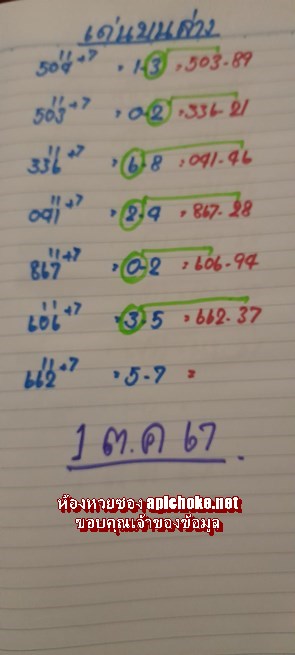 เด่นบนล่าง
504+7 = 1-3 = 503-89
503+7 = 0-2 = 336-21
336+7 = 6-8 = 091-46
091+7 = 2-4 = 867-28
867+7 = 0-2 = 606-94
606+7 = 3-5 = 662-37
662+7 = 5-7 =
1 ต.ค 67
ห้องหวยซอง apichoke.net
ขอบคุณเจ้าของข้อมูล